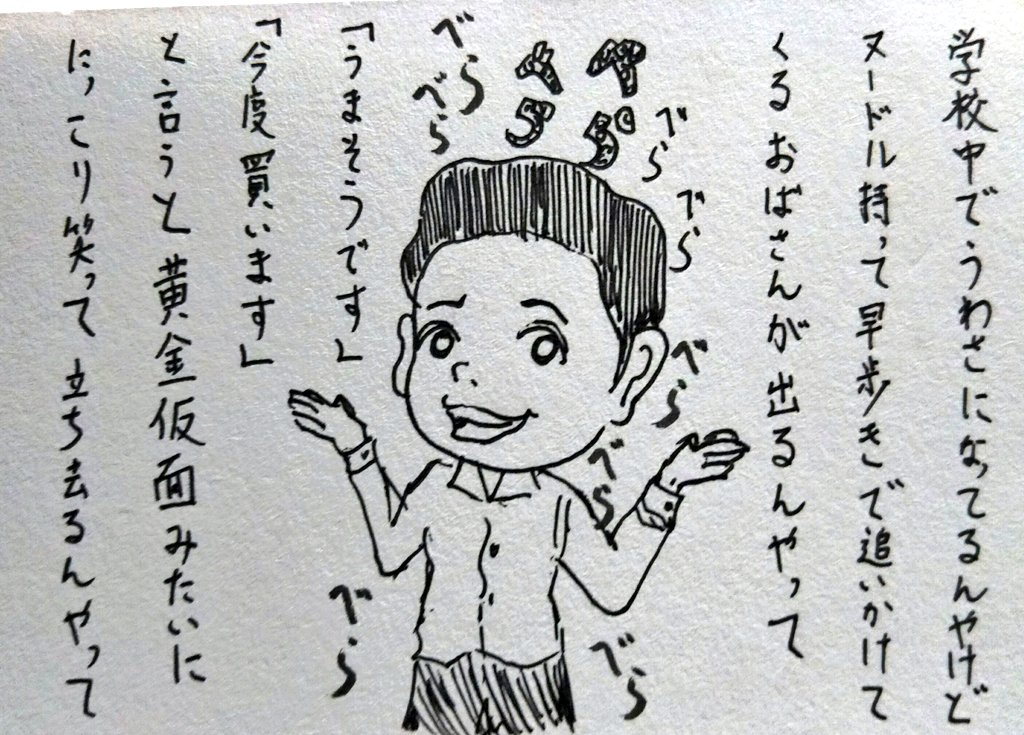 学校中でうわさになってるんやけど
ヌードル持って早歩きで追いかけて
くるおばさんが出るんやって
べら
べら
べら
べら
べら
べら
べら
べら
べら
べら
「うまそうです」
「今度買います」
と言うと黄金仮面みたいに
にっこり笑って立ち去るんやって